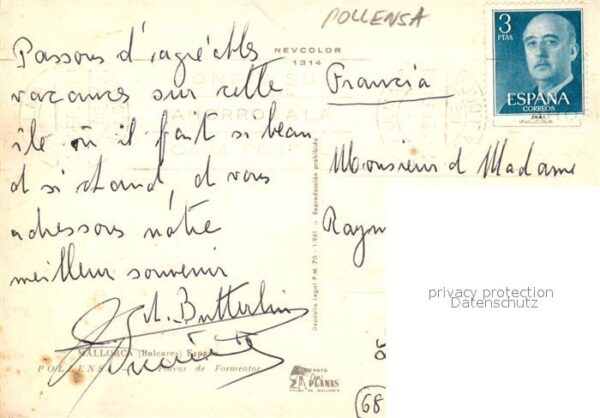 POLLENSA
NEVCOLOR
1314
3
PTAS
ESPAÑA
CORREOS
Passons d'agréables
vacances sur cette
île où il fait si beau
et si chaud, et vous
adressons notre
meilleur souvenir
Francia
Monsieur et Madame
Raym
privacy protection
Datenschutz
Depósito Legal P.M. 70 - 1.961
Reproducción prohibida
MALLORCA (Baleares) España
POLLENSA
Playas de Formentor
FOTO
PLANAS
68